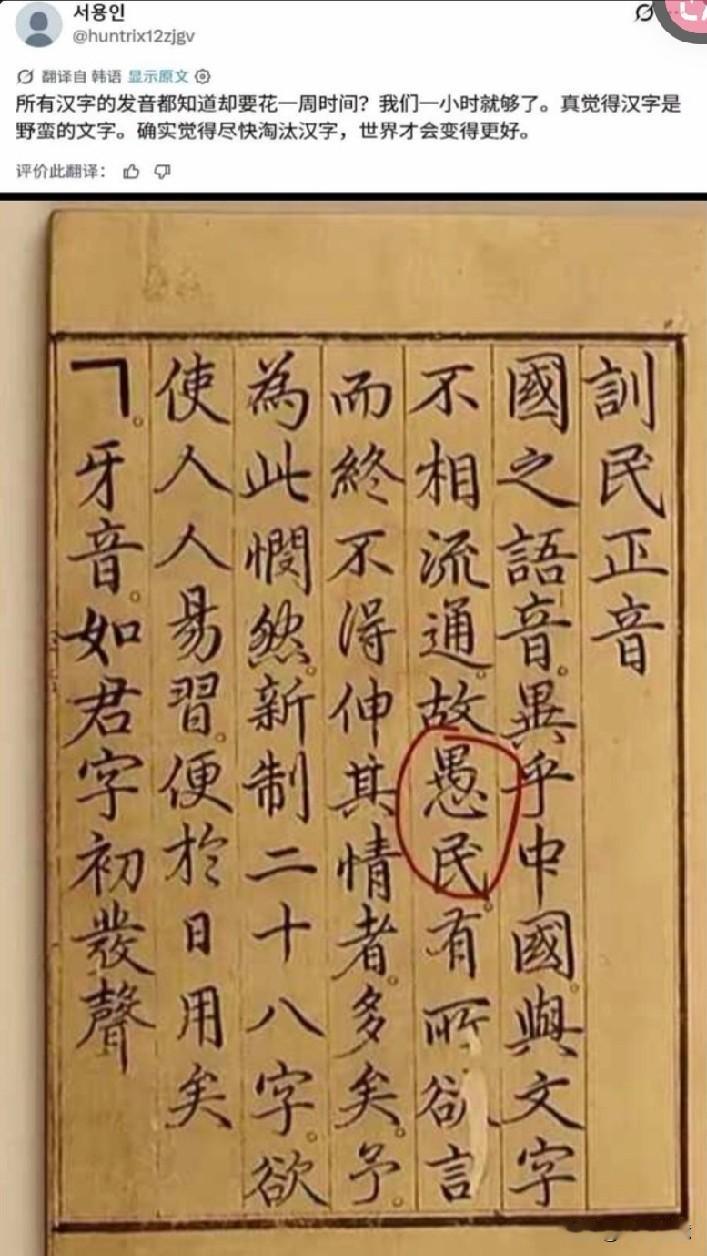 서용인
@huntrix12zjgv
翻译自 韩语 显示原文
所有汉字的发音都知道却要花一周时间？我们一小时就够了。真觉得汉字是
野蛮的文字。确实觉得尽快淘汰汉字，世界才会变得更好。
评价此翻译：
訓民正音
國之語音。異乎中國。與文字
不相流通。故愚民。有所欲言
而終不得伸其情者。多矣。予。
為此憫然。新制二十八字。欲
使人人易習。便於日用矣
ㄱ。牙音。如君字初發聲